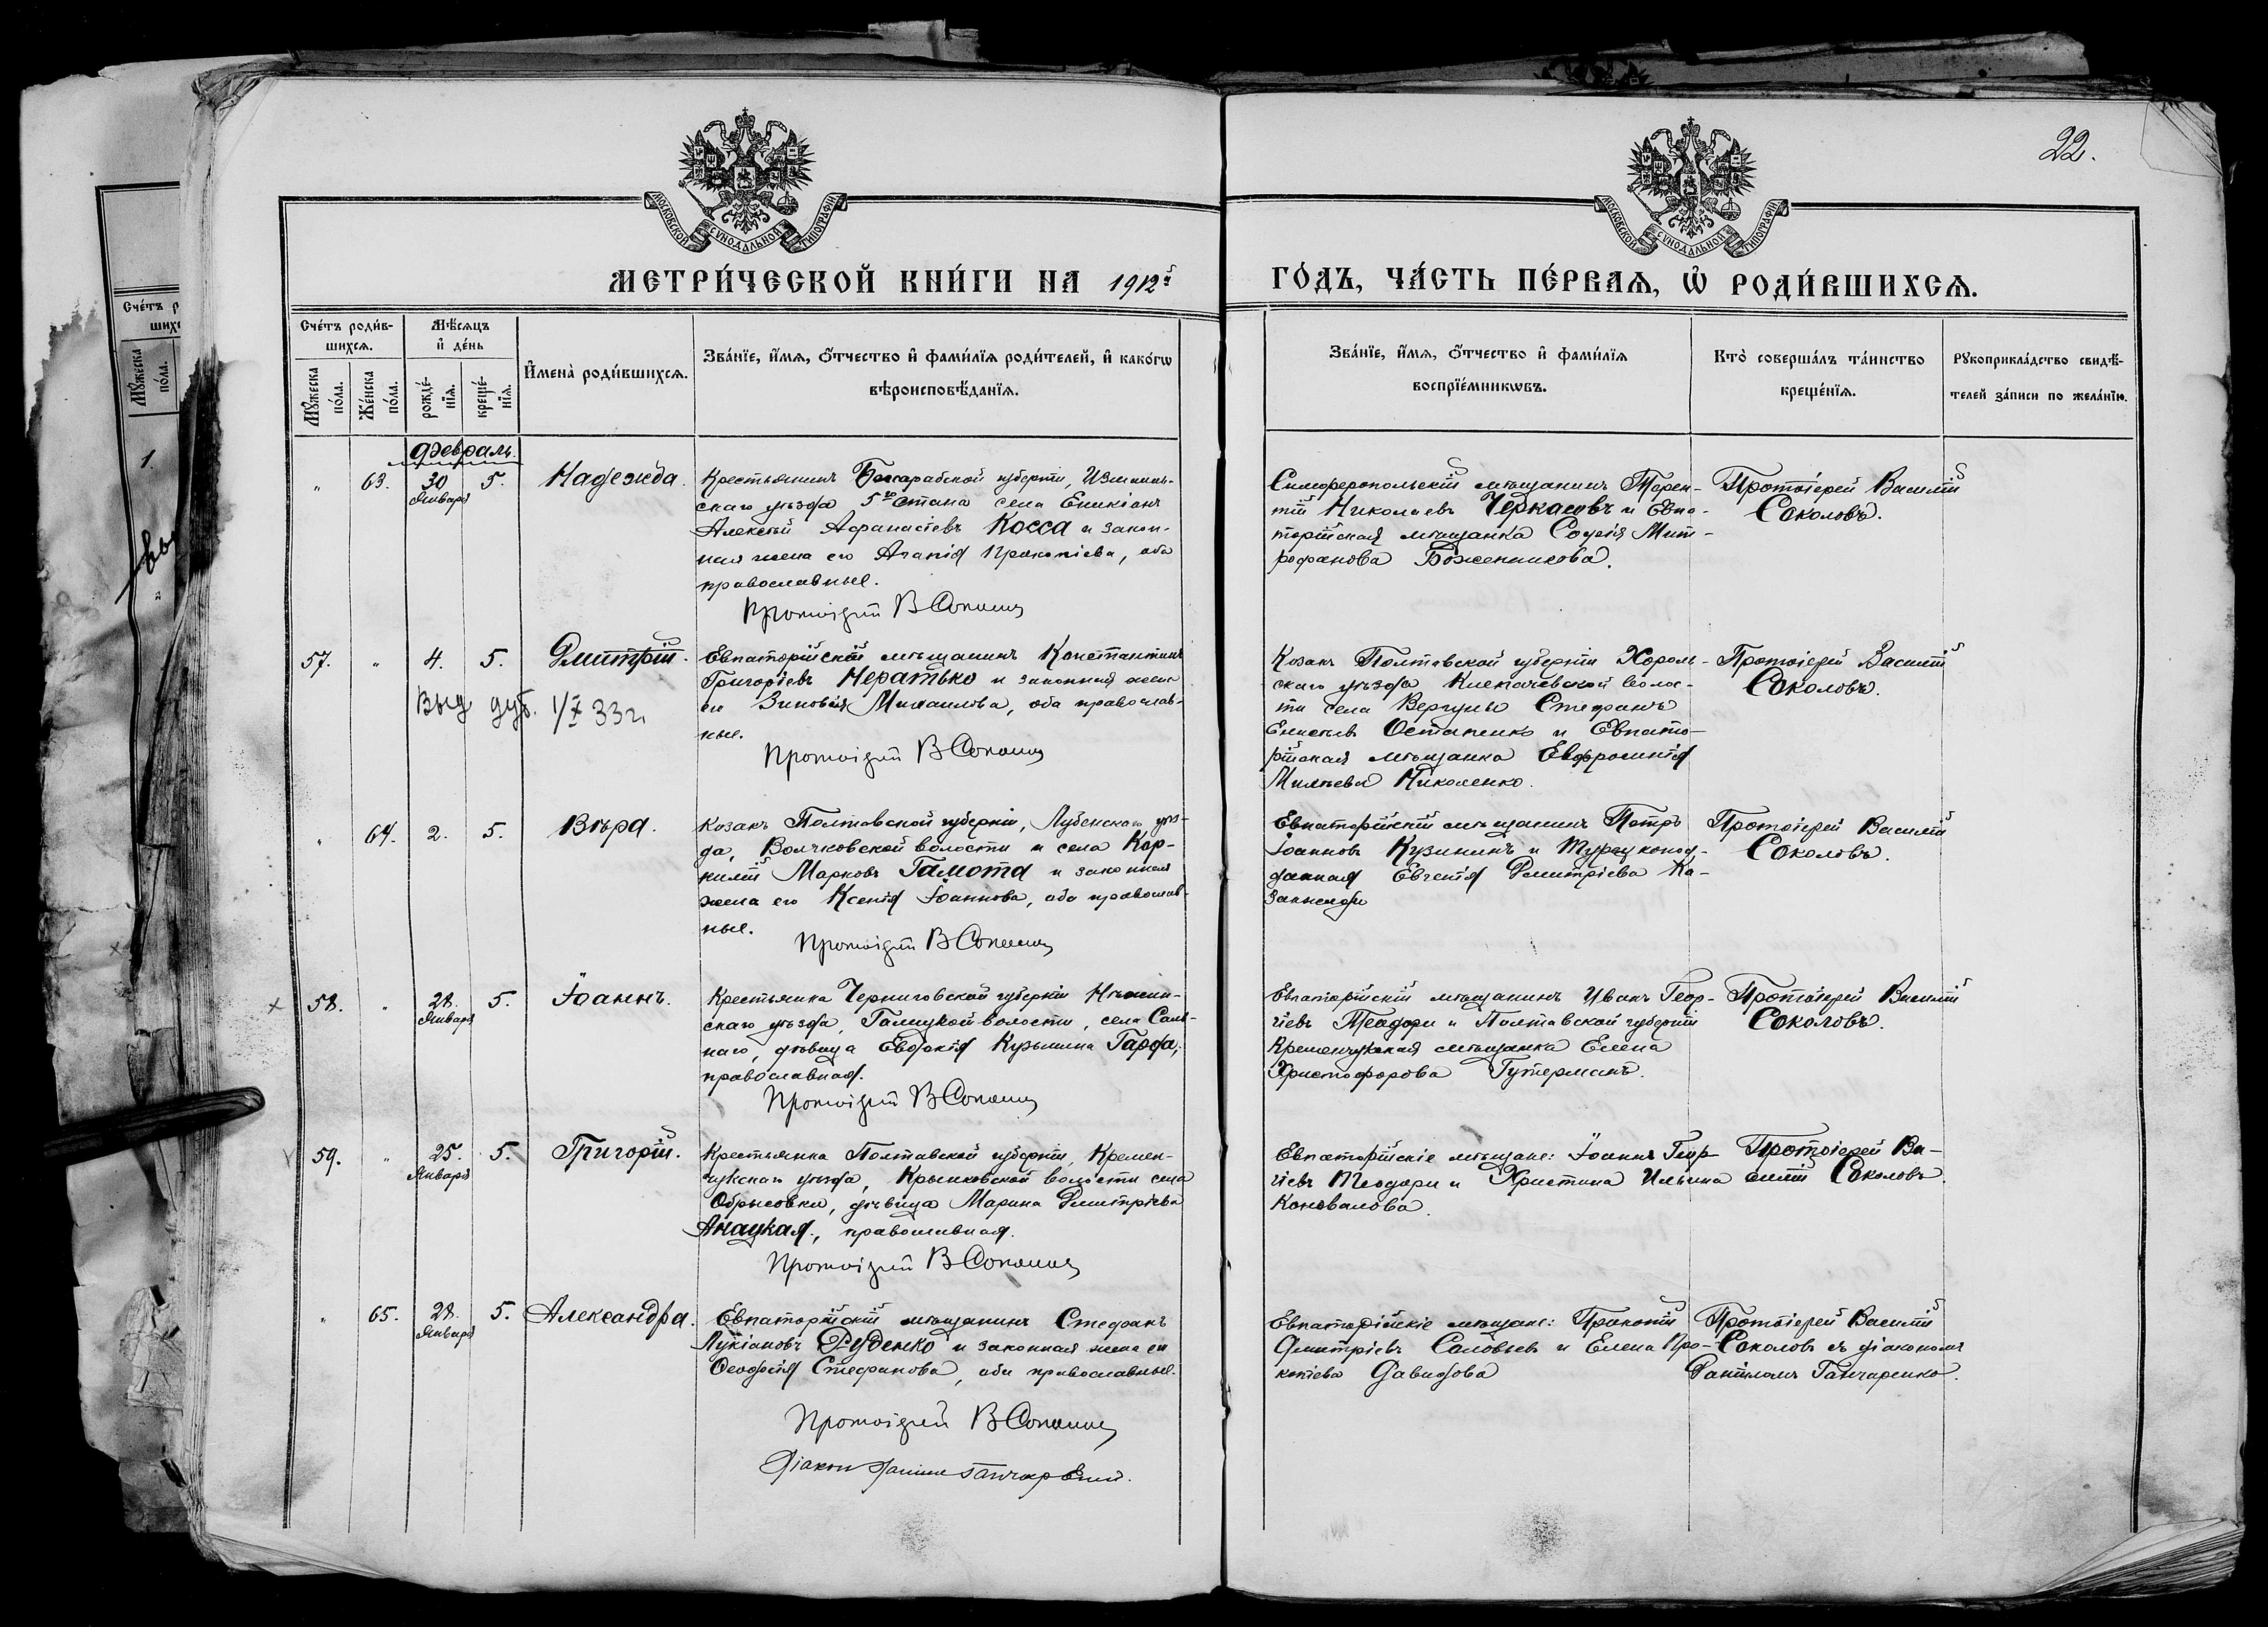 22.
МОСКОВСКОЙ СѴНОДАЛЬНОЙ ТИПОГРАФІИ
МОСКОВСКОЙ СѴНОДАЛЬНОЙ ТИПОГРАФІИ
МЕТРИ́ЧЕСКОЙ КНИ́ГИ НА 1912й ГО́ДЪ, ЧА́СТЬ ПЕ́РВАѦ, Ѡ҆ РОДИ́ВШИХСѦ.
Сче́тъ роди́в-
шихсѧ.
Мꙋ́жеска по́ла.
Же́нска по́ла.
Мѣ́сѧцъ
и҆ де́нь
рожде́-
нїѧ.
креще́-
нїѧ.
И҆мена̀ роди́вшихсѧ.
Зва́нїе, и҆́мѧ, ѻ҆́тчество и҆ фами́лїѧ роди́телей, и҆ како́гѡ
вѣроисповѣ́данїѧ.
Зва́нїе, и҆́мѧ, ѻ҆́тчество и҆ фами́лїѧ
воспрїе́мникѡвъ.
Кто̀ соверша́лъ та́инство
креще́нїѧ.
Рꙋкоприкла́дство свидѣ́-
телей за́писи по жела́нїю.
Февраль.
" 63. 30 Января 5. Надежда.
Крестьянинъ Бессарабской губерніи, Измаиль-
скаго уѣзда 5го стана села Еникіоя
Алексѣй Афанасіевъ Косса и закон-
ная жена его Агапія Прокопіева, оба
православные.
Протоіерей В Соколовъ
Симферопольскій мѣщанинъ Терен-
тій Николаевъ Черкасовъ и Евпа-
торійская мѣщанка Софія Мит-
рофанова Боженникова.
Протоіерей Василій
Соколовъ.
57. " 4. 5. Дмитрій.
Выд дуб. 1/X 33 г.
Евпаторійскій мѣщанинъ Константинъ
Григоріевъ Нератько и законная жена
его Зиновія Михаилова, оба православ-
ные.
Протоіерей В Соколовъ
Козакъ Полтавской губерніи Хороль-
скаго уѣзда волос-
ти села Вергуны Стефанъ
Елисеевъ Остапенко и Евпато-
рійская мѣщанка Евфросинія
Николенко.
Протоіерей Василій
Соколовъ.
" 64. 2. 5. Вѣра.
Козакъ Полтавской губерніи, Лубенскаго уѣз-
да, Волчковской волости и села Кор-
нилій Марковъ Гамота и законная
жена его Ксенія Іоаннова, оба православ-
ные.
Протоіерей В Соколовъ
Евпаторійскій мѣщанинъ Петръ
Іоанновъ Кузининъ и Турецкопод-
данная Евгенія Димитріева Ка-
Протоіерей Василій
Соколовъ.
58. " 28. Января 5. Іоаннъ.
Крестьянка Черниговской губерніи Нѣжин-
скаго уѣзда, Галицкой волости, села Саль-
наго, дѣвица Евдокія Кузьмина Гарда;
православная.
Протоіерей В Соколовъ
Евпаторійскій мѣщанинъ Иванъ Геор-
гіевъ Теодори и Полтавской губерніи
Кременчугская мѣщанка Елена
Христофорова Гутерманъ.
Протоіерей Василій
Соколовъ.
59. " 25. Января 5. Григорій.
Крестьянка Полтавской губерніи, Кремен-
чугскаго уѣзда, Крыловской волости села
Обрысовки, дѣвица Марина Димитріева
Анацкая, православная.
Протоіерей В Соколовъ
Евпаторійскіе мѣщане: Іоаннъ Геор-
гіевъ Теодори и Христина Ильина
Коновалова.
Протоіерей Ва-
силій Соколовъ.
" 65. 28. Января 5. Александра.
Евпаторійскій мѣщанинъ Стефанъ
Лукіановъ Руденко и законная жена его
Феодосія Стефанова, оба православные.
Протоіерей В Соколовъ
Діаконъ Даніилъ Ганчаренко.
Евпаторійскіе мѣщане: Прокопій
Димитріевъ Соловьевъ и Елена Про-
копіева Давидова
Протоіерей Василій
Соколовъ съ діакономъ
Даніиломъ Ганчаренко.
Сче́тъ р
шихс
Мꙋ́жеска по́ла.
1.